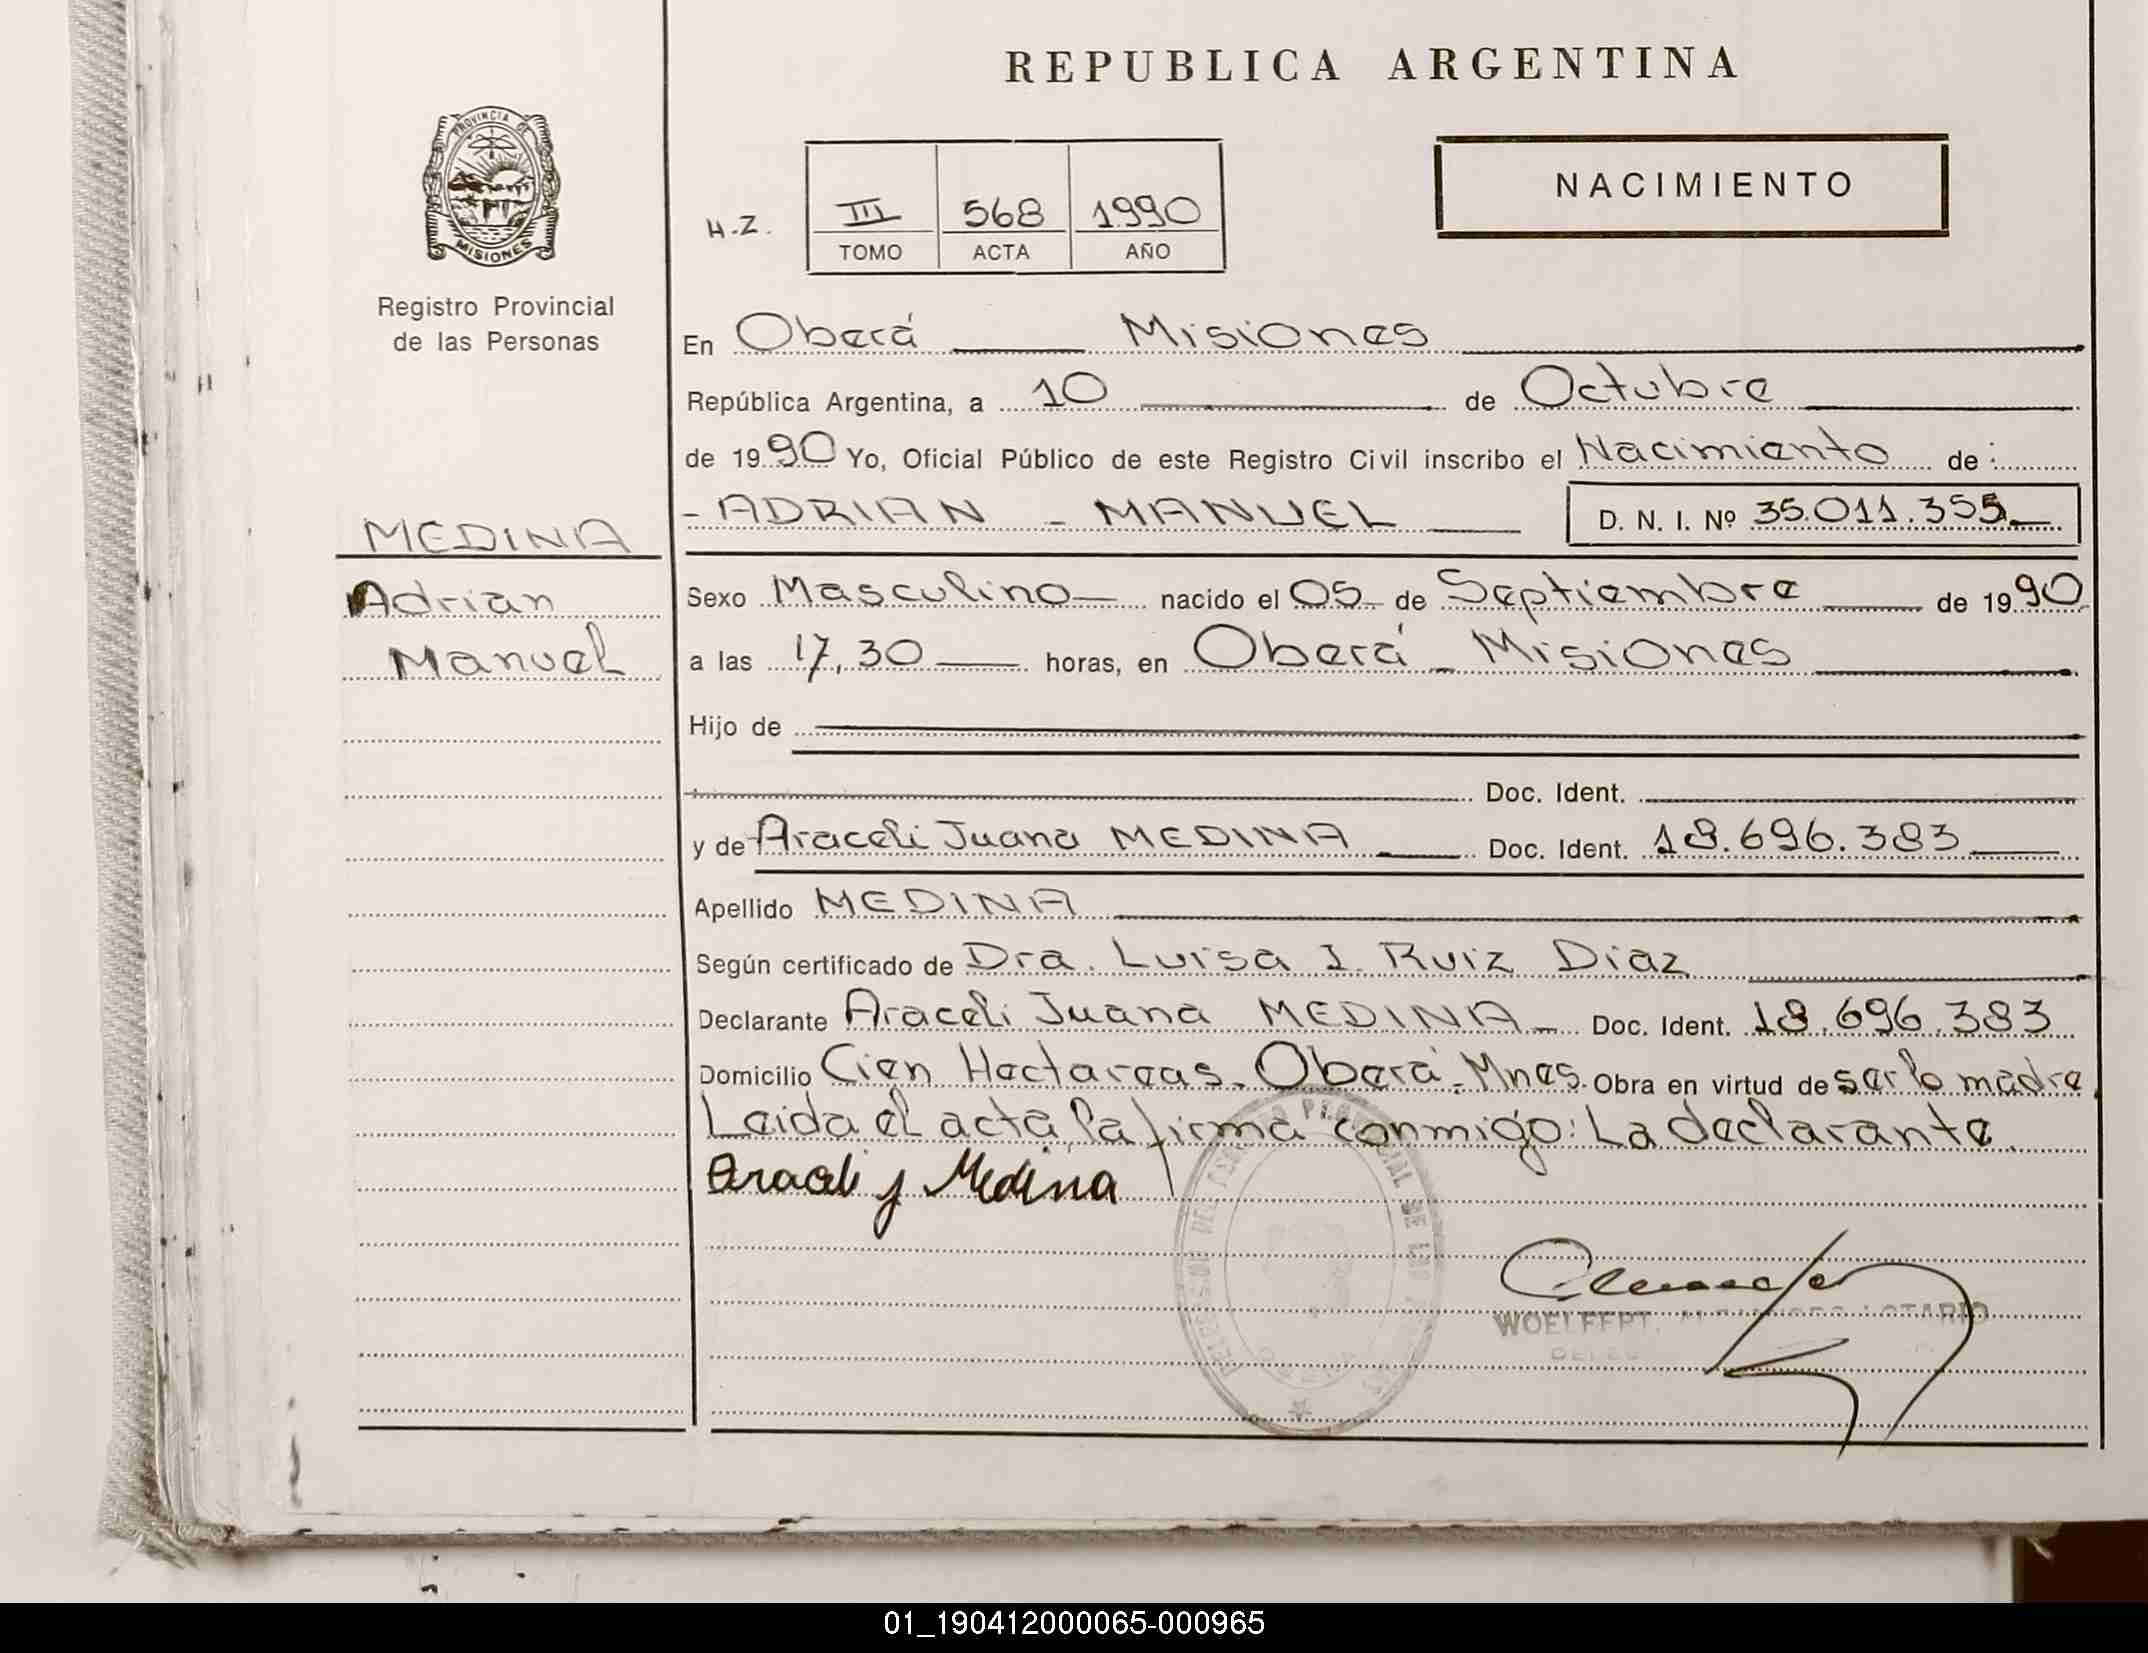 REPUBLICA ARGENTINA
PROVINCIA DE
MISIONES
Registro Provincial
de las Personas
H.Z.
III 568 1990
TOMO ACTA AÑO
NACIMIENTO
En Oberá Misiones
República Argentina, a 10 de Octubre
de 1990 Yo, Oficial Público de este Registro Civil inscribo el Nacimiento de:
- ADRIAN - MANUEL D. N. I. Nº 35.011.355
MEDINA
Adrian
Manuel
Sexo Masculino nacido el 05 de Septiembre de 1990
a las 17,30 horas, en Oberá - Misiones
Hijo de
Doc. Ident.
y de Araceli Juana MEDINA Doc. Ident. 18.696.383
Apellido MEDINA
Según certificado de Dra. Luisa I. Ruiz Diaz
Declarante Araceli Juana MEDINA Doc. Ident. 18.696.383
Domicilio Cien Hectareas - Oberá - Mnes. Obra en virtud de ser la madre
Leida el acta, la firma conmigo: La declarante.
Araceli J Medina
01_190412000065-000965